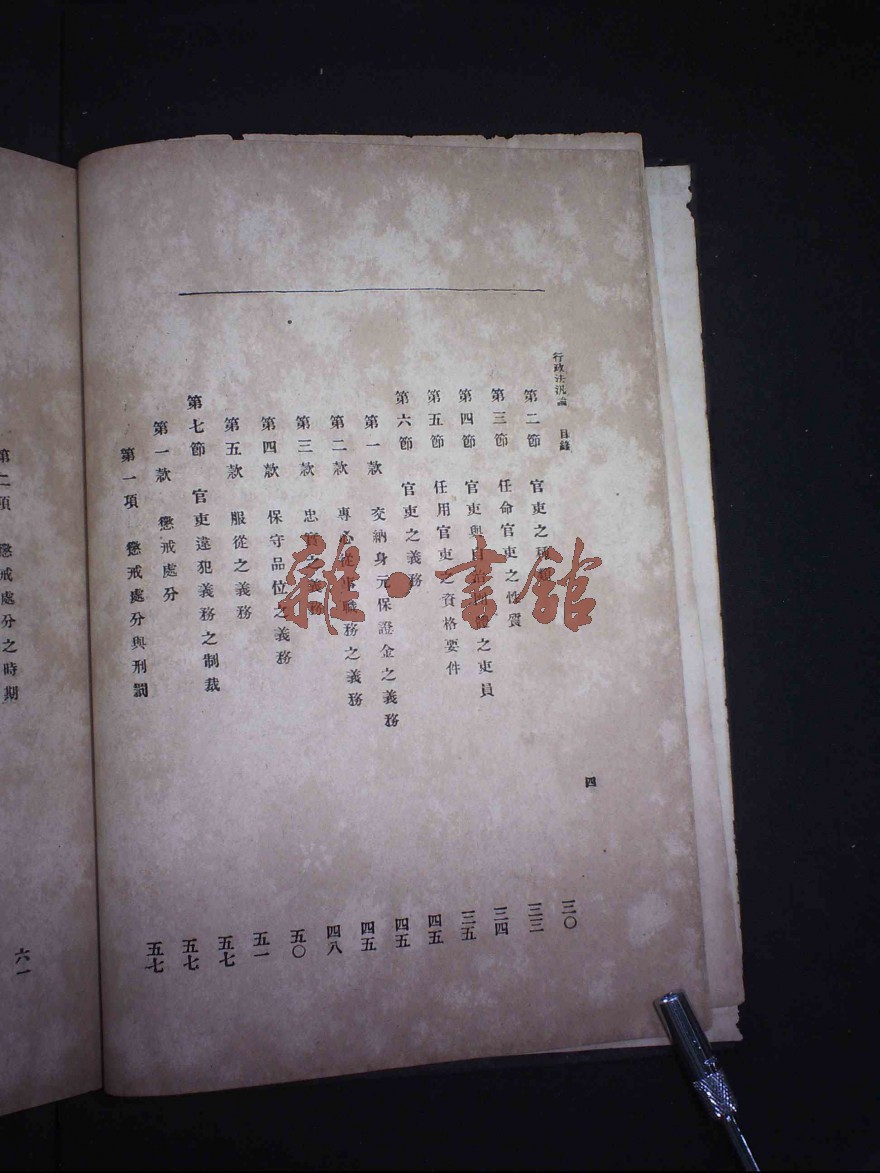 行政法汎論 目錄
四
第二節 官吏之種類 三〇
第三節 任命官吏之性質 三三
第四節 官吏與自治團體之吏員 三四
第五節 任用官吏之資格要件 三五
第六節 官吏之義務 四五
第一款 交納身元保證金之義務 四五
第二款 專心從事職務之義務 四五
第三款 忠實之義務 四八
第四款 保守品位之義務 五〇
第五款 服從之義務 五一
第七節 官吏違犯義務之制裁 五七
第一款 懲戒處分 五七
第一項 懲戒處分與刑罰 五七
第二項 懲戒處分之時期 六一
雜·書館